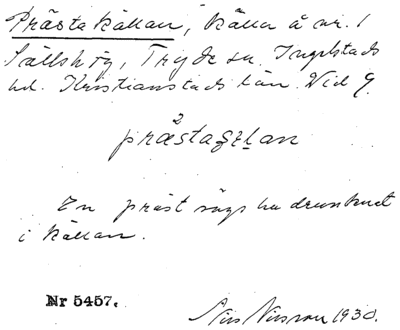 Prästakällan, Källa å nr. 1
Sällshög, Tryde sn. Ingelstads
hd. Kristianstads län. Vid G
2
prästaʒɛlan
En präst sägs ha drunknat
i källan.
Nr 5457.
Nils Nilsson 1930.